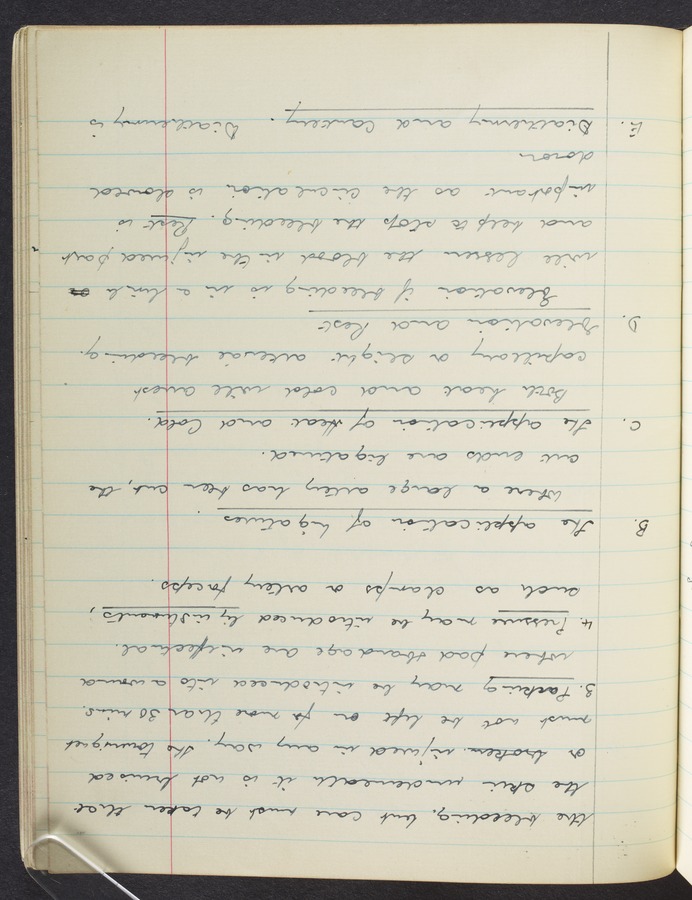 the bleeding, but care must be taken that
the skin underneath it is not bruised
or broken injured in any way. The tourniquet
must not be left on for more than 30 mins.
3. Packing may be introduced into a wound
where pad & bandage are ineffectual.
4. Pressure may be introduced by instruments,
such as clamps or artery forceps.
B. The application of ligatures.
Where a large artery has been cut, the
cut ends are ligatured.
C. The application of Heat and Cold.
Both heat and cold will arrest
capillary or slight arterial bleeding.
D. Elevation and Rest
Elevation if bleeding is in a limb
will lessen the blood in the injured part
and help to stop the bleeding. Rest is
important as the circulation is slowed
down
E. Diathermy and Cautery. Diathermy is